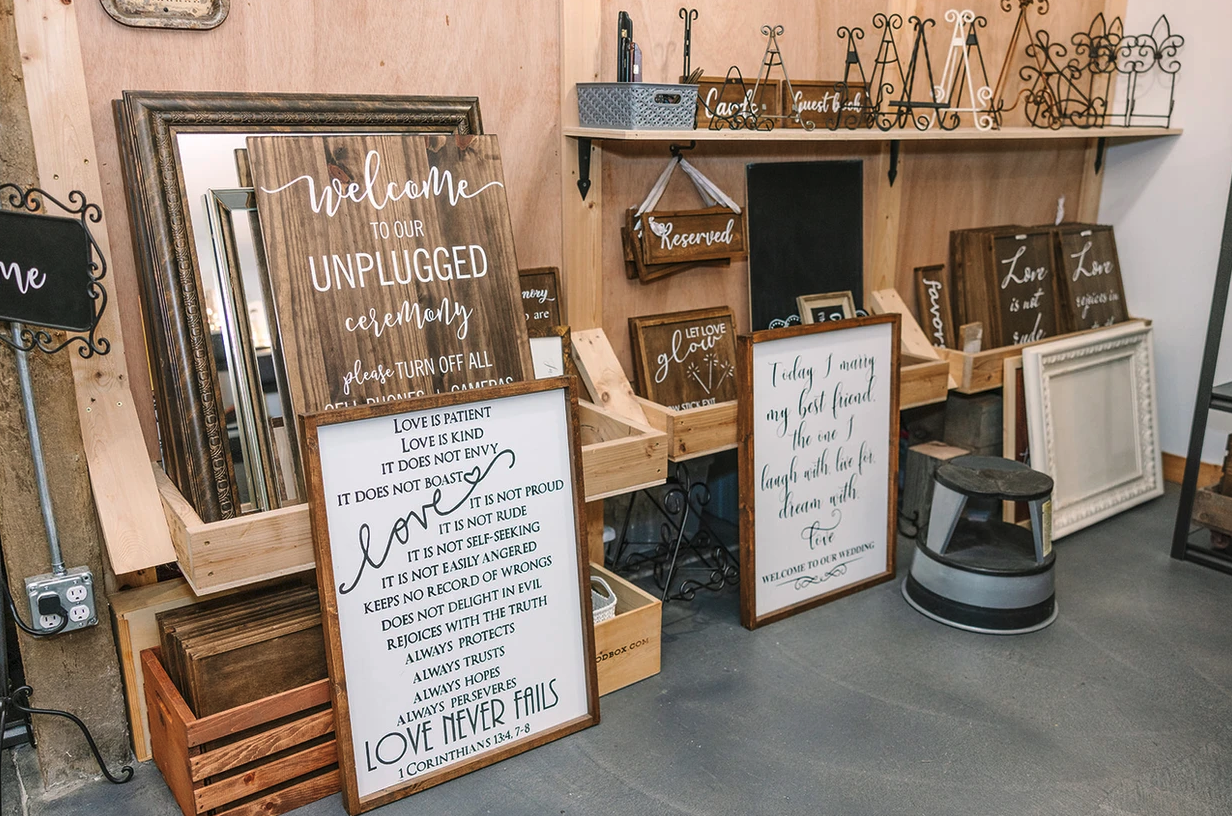 me
welcome
TO OUR
UNPLUGGED
ceremony
please TURN OFF ALL
CELL PHONES CAMERAS
LOVE IS PATIENT
LOVE IS KIND
IT DOES NOT ENVY
IT DOES NOT BOAST
love IT IS NOT PROUD
IT IS NOT RUDE
IT IS NOT SELF-SEEKING
IT IS NOT EASILY ANGERED
KEEPS NO RECORD OF WRONGS
DOES NOT DELIGHT IN EVIL
REJOICES WITH THE TRUTH
ALWAYS PROTECTS
ALWAYS TRUSTS
ALWAYS HOPES
ALWAYS PERSEVERES
LOVE NEVER FAILS
1 CORINTHIANS 13:4, 7-8
are
ODBOX.COM
Cards
Guest book
Reserved
LET LOVE
glow
STICK EXIT
Today I marry
my best friend,
the one I
laugh with, live for,
dream with,
love
WELCOME TO OUR WEDDING
favors
Love
is not
rude
Love
rejoices in